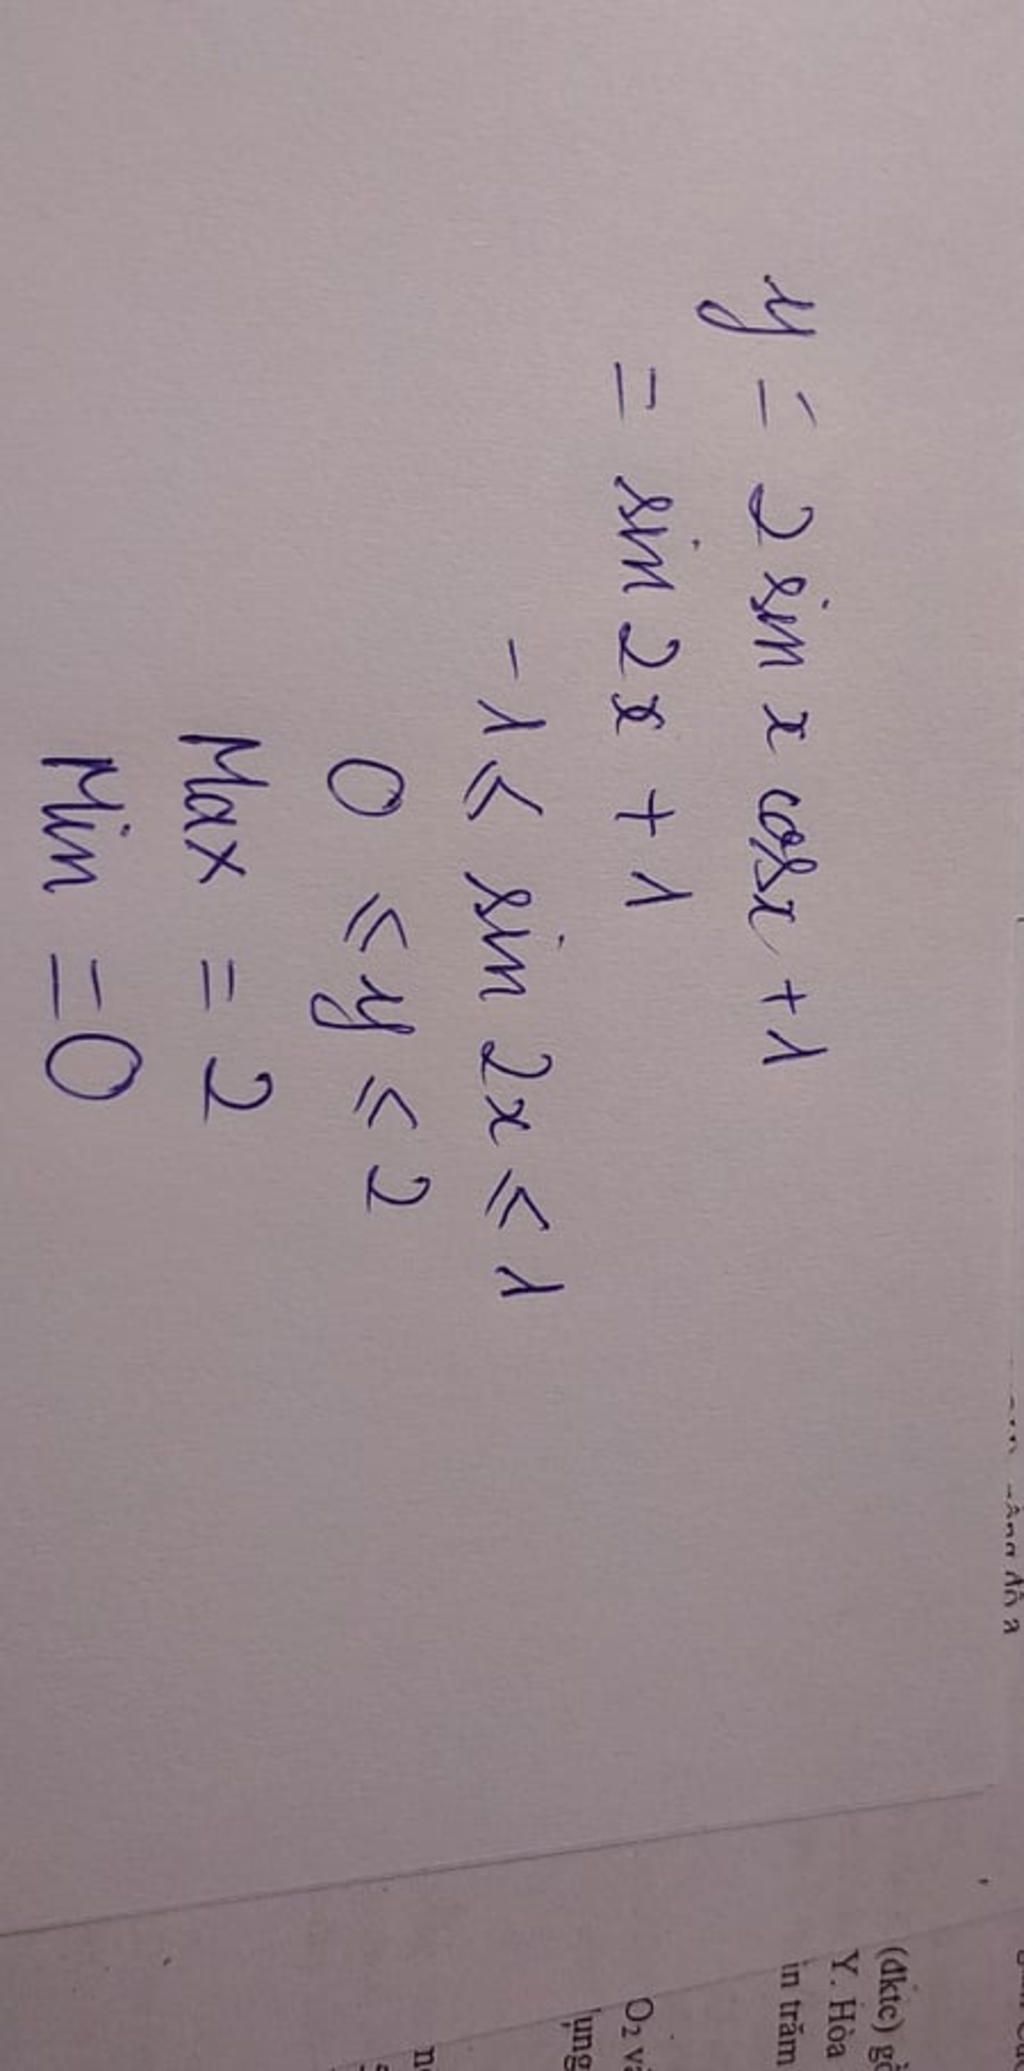 y = 2 sin x cosx + 1
= sin 2x + 1
-1 ≤ sin 2x ≤ 1
0 ≤ y ≤ 2
Max = 2
Min = 0
(đktc)
Y. Hòa
in trăm
O₂